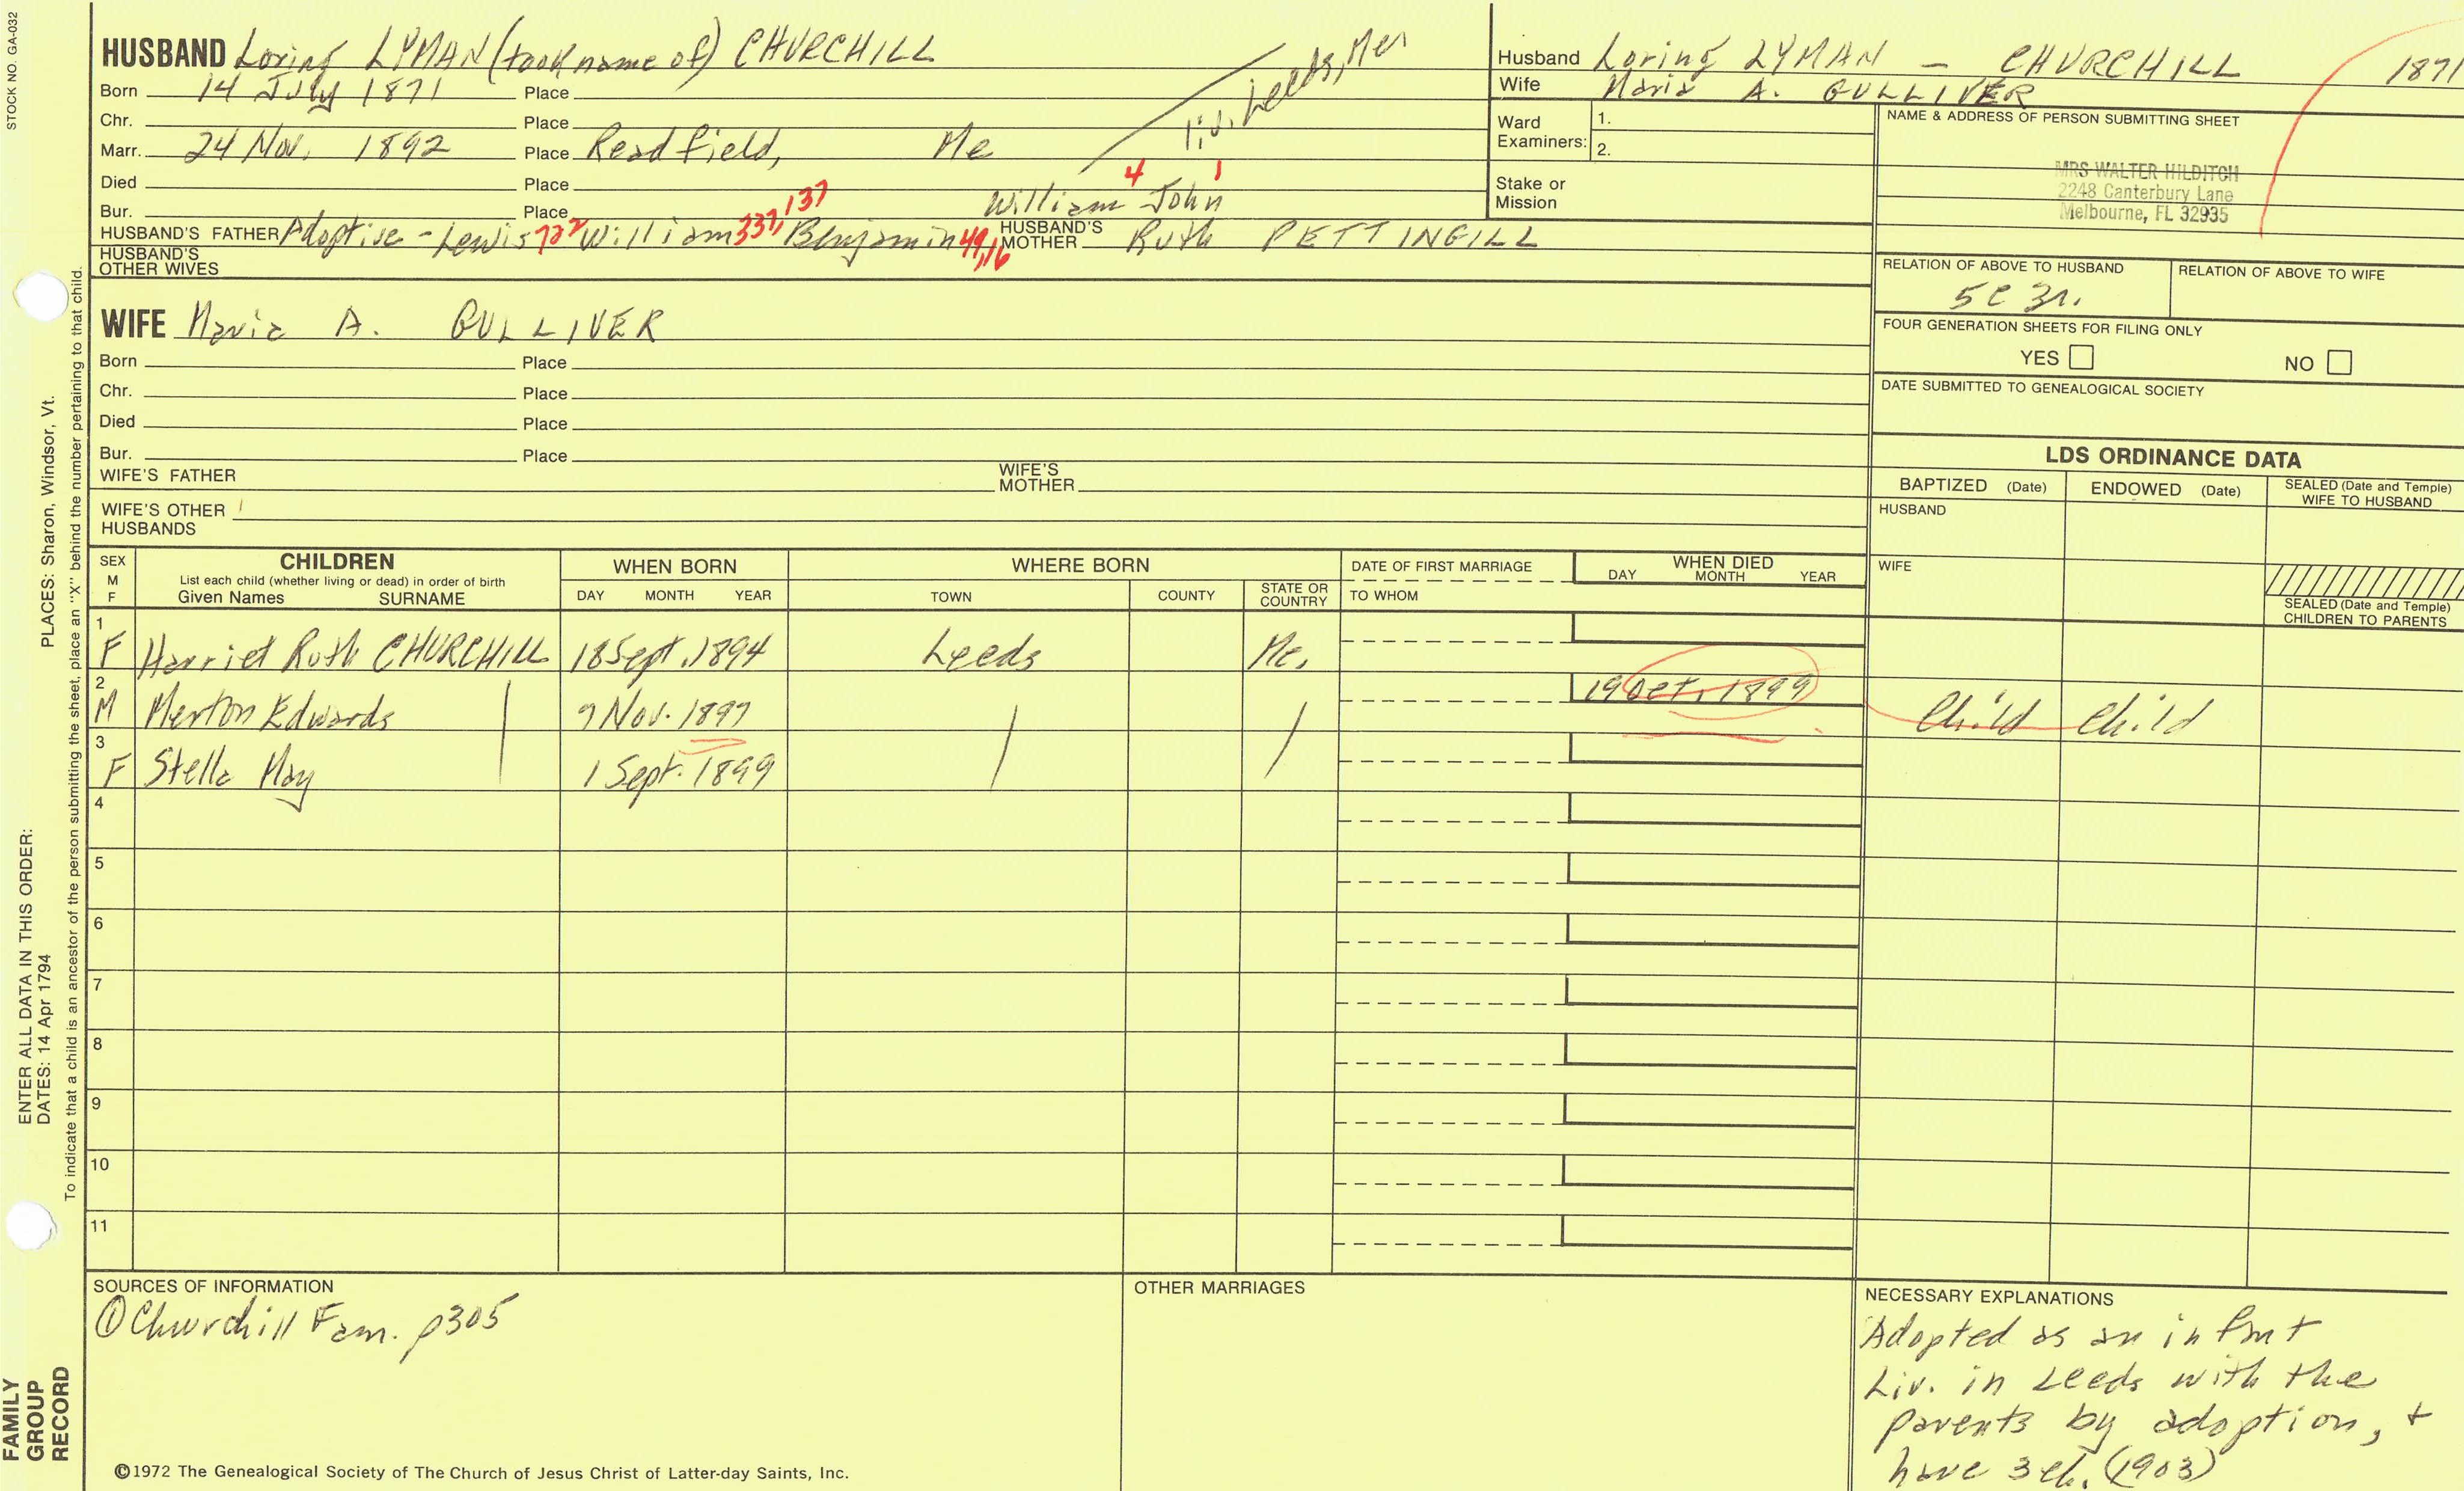 STOCK NO. GA-032
HUSBAND Loring LYMAN (took name of) CHURCHILL
liv. Leeds, Me.
Born 14 July 1871 Place
Chr. Place
Marr. 24 Nov. 1892 Place Readfield, Me
Died Place
Bur. Place
4 1
William John
HUSBAND'S FATHER Adoptive - Lewis 722 William 337, 137 Benjamin 49, 16 HUSBAND'S MOTHER Ruth PETTINGILL
HUSBAND'S OTHER WIVES
WIFE Maria A. GULLIVER
Born Place
Chr. Place
Died Place
Bur. Place
WIFE'S FATHER WIFE'S MOTHER
WIFE'S OTHER HUSBANDS
Husband Loring LYMAN - CHURCHILL 1871
Wife Maria A. GULLIVER
Ward Examiners: 1.
2.
Stake or Mission
NAME & ADDRESS OF PERSON SUBMITTING SHEET
MRS WALTER HILDITCH
2248 Canterbury Lane
Melbourne, FL 32935
RELATION OF ABOVE TO HUSBAND RELATION OF ABOVE TO WIFE
5c 3r.
FOUR GENERATION SHEETS FOR FILING ONLY
YES NO
DATE SUBMITTED TO GENEALOGICAL SOCIETY
LDS ORDINANCE DATA
BAPTIZED (Date) ENDOWED (Date) SEALED (Date and Temple) WIFE TO HUSBAND
HUSBAND
WIFE
SEALED (Date and Temple) CHILDREN TO PARENTS
SEX M F CHILDREN WHEN BORN WHERE BORN DATE OF FIRST MARRIAGE WHEN DIED
List each child (whether living or dead) in order of birth
Given Names SURNAME DAY MONTH YEAR TOWN COUNTY STATE OR COUNTRY TO WHOM DAY MONTH YEAR
1 F Harriet Ruth CHURCHILL 18 Sept. 1894 Leeds Me.
2 M Merton Edwards 7 Nov. 1897 19 Oct. 1899 Child Child
3 F Stella May 1 Sept. 1899
4
5
6
7
8
9
10
11
SOURCES OF INFORMATION
① Churchill Fam. p305
OTHER MARRIAGES
NECESSARY EXPLANATIONS
Adopted as an infant
Liv. in Leeds with the
parents by adoption, +
have 3 ch. (1903)
©1972 The Genealogical Society of The Church of Jesus Christ of Latter-day Saints, Inc.
ENTER ALL DATA IN THIS ORDER:
DATES: 14 Apr 1794 PLACES: Sharon, Windsor, Vt.
To indicate that a child is an ancestor of the person submitting the sheet, place an "X" behind the number pertaining to that child.
FAMILY
GROUP
RECORD